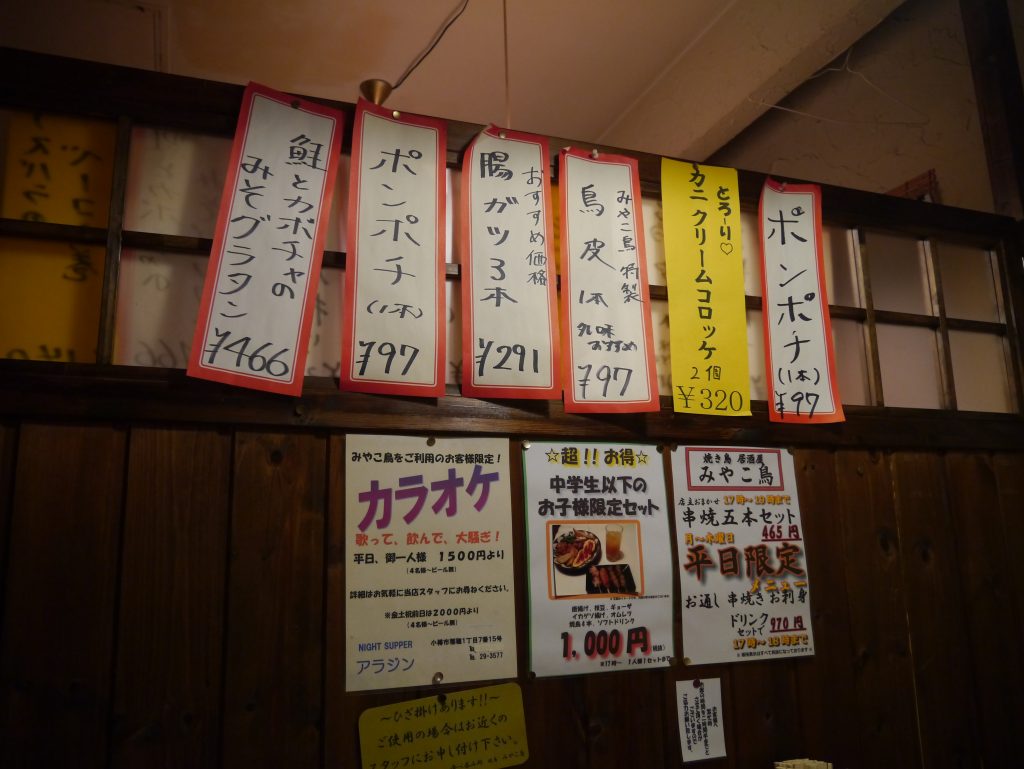 鮭とカボチャの
みそグラタン
¥466
ポンポチ
(1本)
¥97
おすすめ価格
腸ガツ3本
¥291
みやこ鳥特製
鳥皮1本
おすすめ
¥97
とろーり♡
カニクリームコロッケ
2個
¥320
ポンポチ
(1本)
¥97
みやこ鳥をご利用のお客様限定!
カラオケ
歌って、飲んで、大騒ぎ!
平日、御一人様 1500円より
(4名様~ビール無)
詳細はお気軽に当店スタッフにお尋ねください。
※金土祝前日は2000円より
(4名様~ビール無)
NIGHT SUPPER
アラジン
小樽市稲穂1丁目7番15号
℡ 29-3577
☆超!!お得☆
中学生以下の
お子様限定セット
唐揚げ、枝豆、ギョーザ
イカゲソ揚げ、オムレツ
焼鳥4本、ソフトドリンク
1,000円
※17時~ 1人様1セットまで
焼き鳥 居酒屋
みやこ鳥
店主おまかせ 17時~19時まで
串焼五本セット
465円
月~木曜日
平日限定
メニュー
お通し 串焼き お刺身
ドリンク
セットで 970円
17時~18時まで
~ひざ掛けあります!!~
ご使用の場合はお近くの
スタッフにお申し付け下さい。